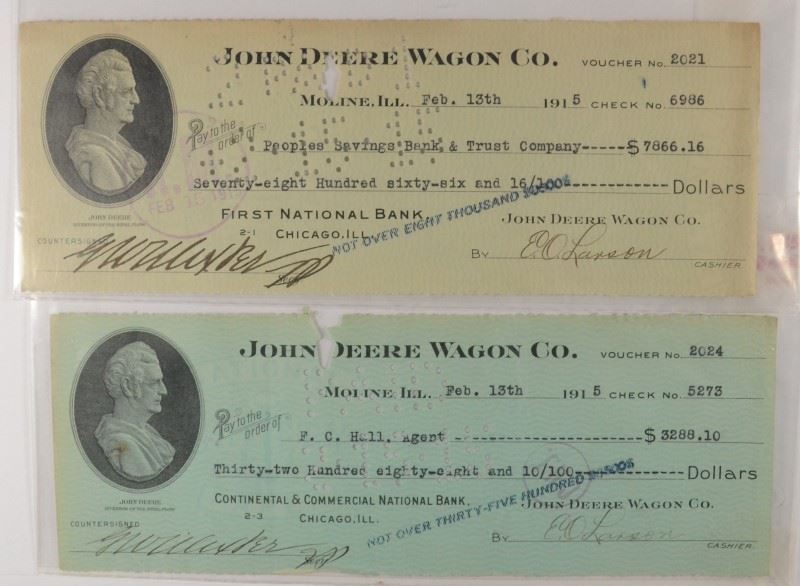 JOHN DEERE WAGON CO. VOUCHER NO. 2021
MOLINE, ILL. Feb. 13th 1915 CHECK NO. 6986
Pay to the order of Peoples Savings Bank & Trust Company-----$ 7866.16
Seventy-eight Hundred sixty-six and 16/100------------Dollars
FEB 15 191
JOHN DEERE
FIRST NATIONAL BANK, JOHN DEERE WAGON CO.
2-1 CHICAGO, ILL.
NOT OVER EIGHT THOUSAND $8000$
COUNTERSIGNED
BY E.O. Larson
CASHIER.
JOHN DEERE WAGON CO. VOUCHER NO. 2024
MOLINE, ILL. Feb. 13th 1915 CHECK NO. 5273
Pay to the order of F. C. Hall, Agent ------------------$ 3288.10
Thirty-two Hundred eighty-eight and 10/100------------Dollars
JOHN DEERE
CONTINENTAL & COMMERCIAL NATIONAL BANK, JOHN DEERE WAGON CO.
2-3 CHICAGO, ILL.
NOT OVER THIRTY-FIVE HUNDRED $3500$
COUNTERSIGNED
BY E.O. Larson
CASHIER.